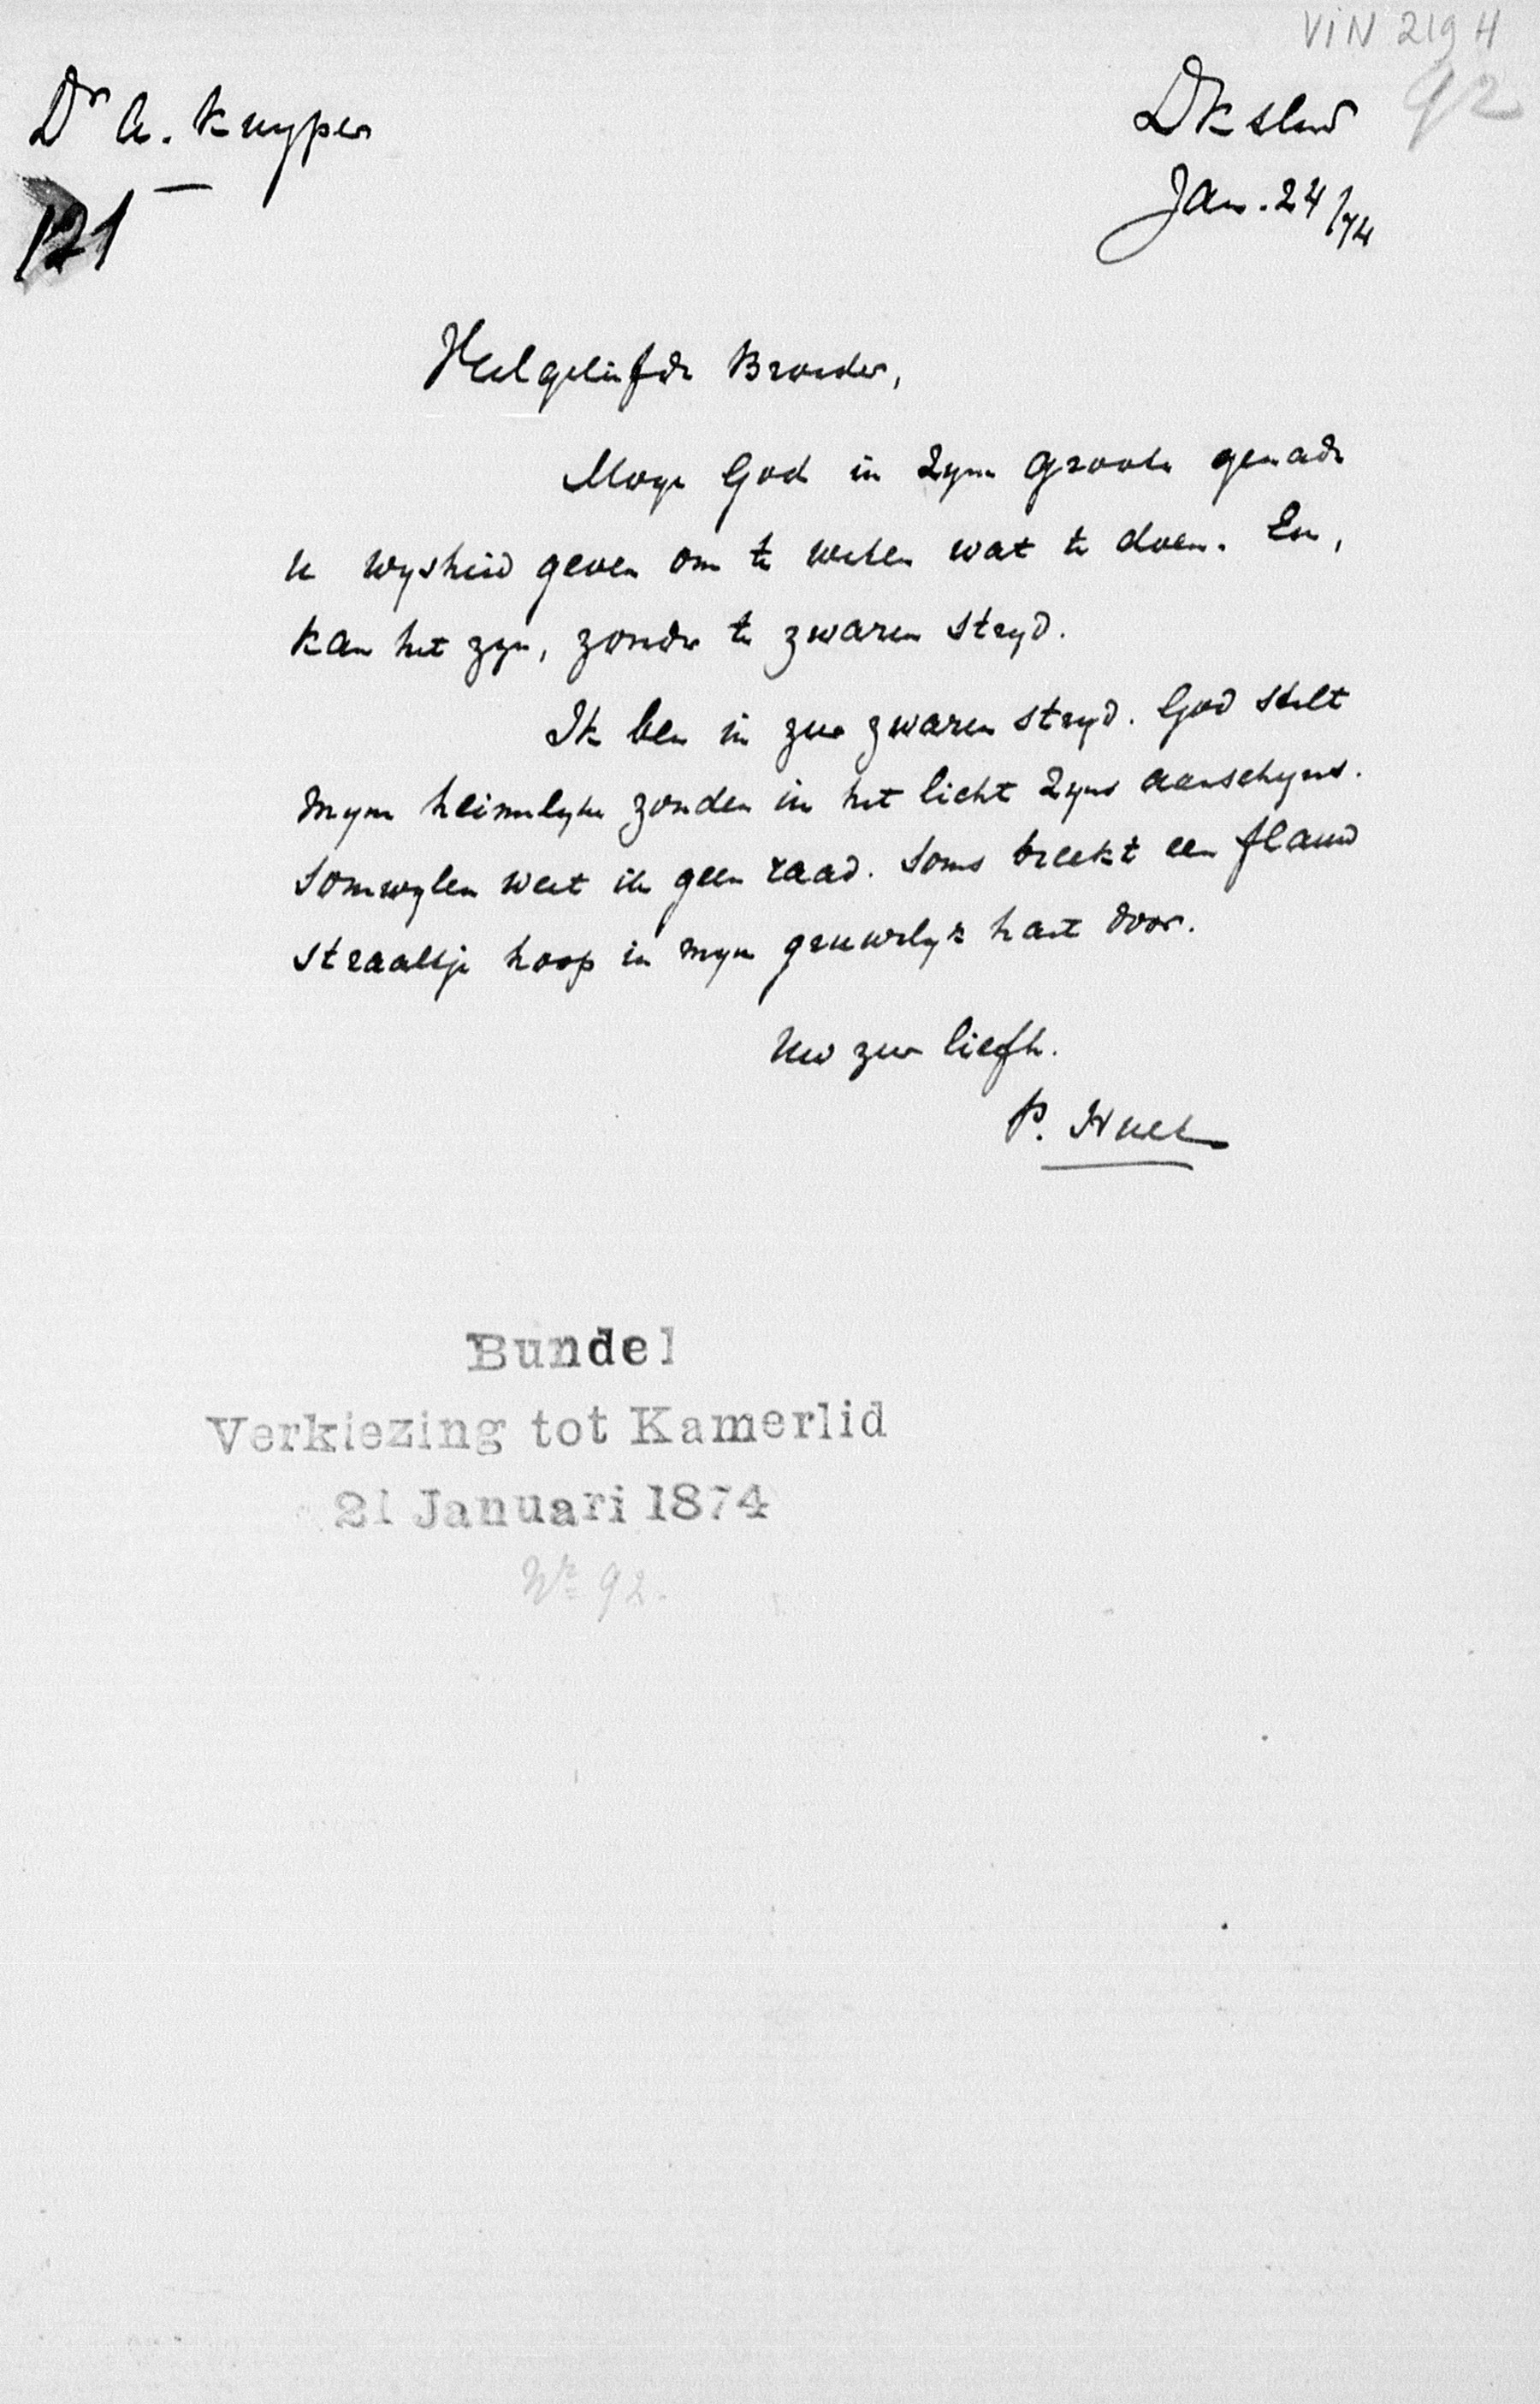 VIN 219 H
92
Dr A. Kuyper
Dksland
121
Jan. 24/74
Heelgeliefde Broeder,
Moge God in Zyne Groote genade
U wysheid geven om te weten wat te doen. En,
kan het zyn, zonder te zwaren stryd.
Ik ben in zeer zwaren stryd. God stelt
myne heimelyke zonden in het licht Zyns aanschyns.
Somwylen weet ik geen raad. Soms breekt een flauw
straaltje hoop in myn gruwelyk hart door.
Uw zeer liefh.
P. Huet
Bundel
Verkiezing tot Kamerlid
21 Januari 1874
No 92.